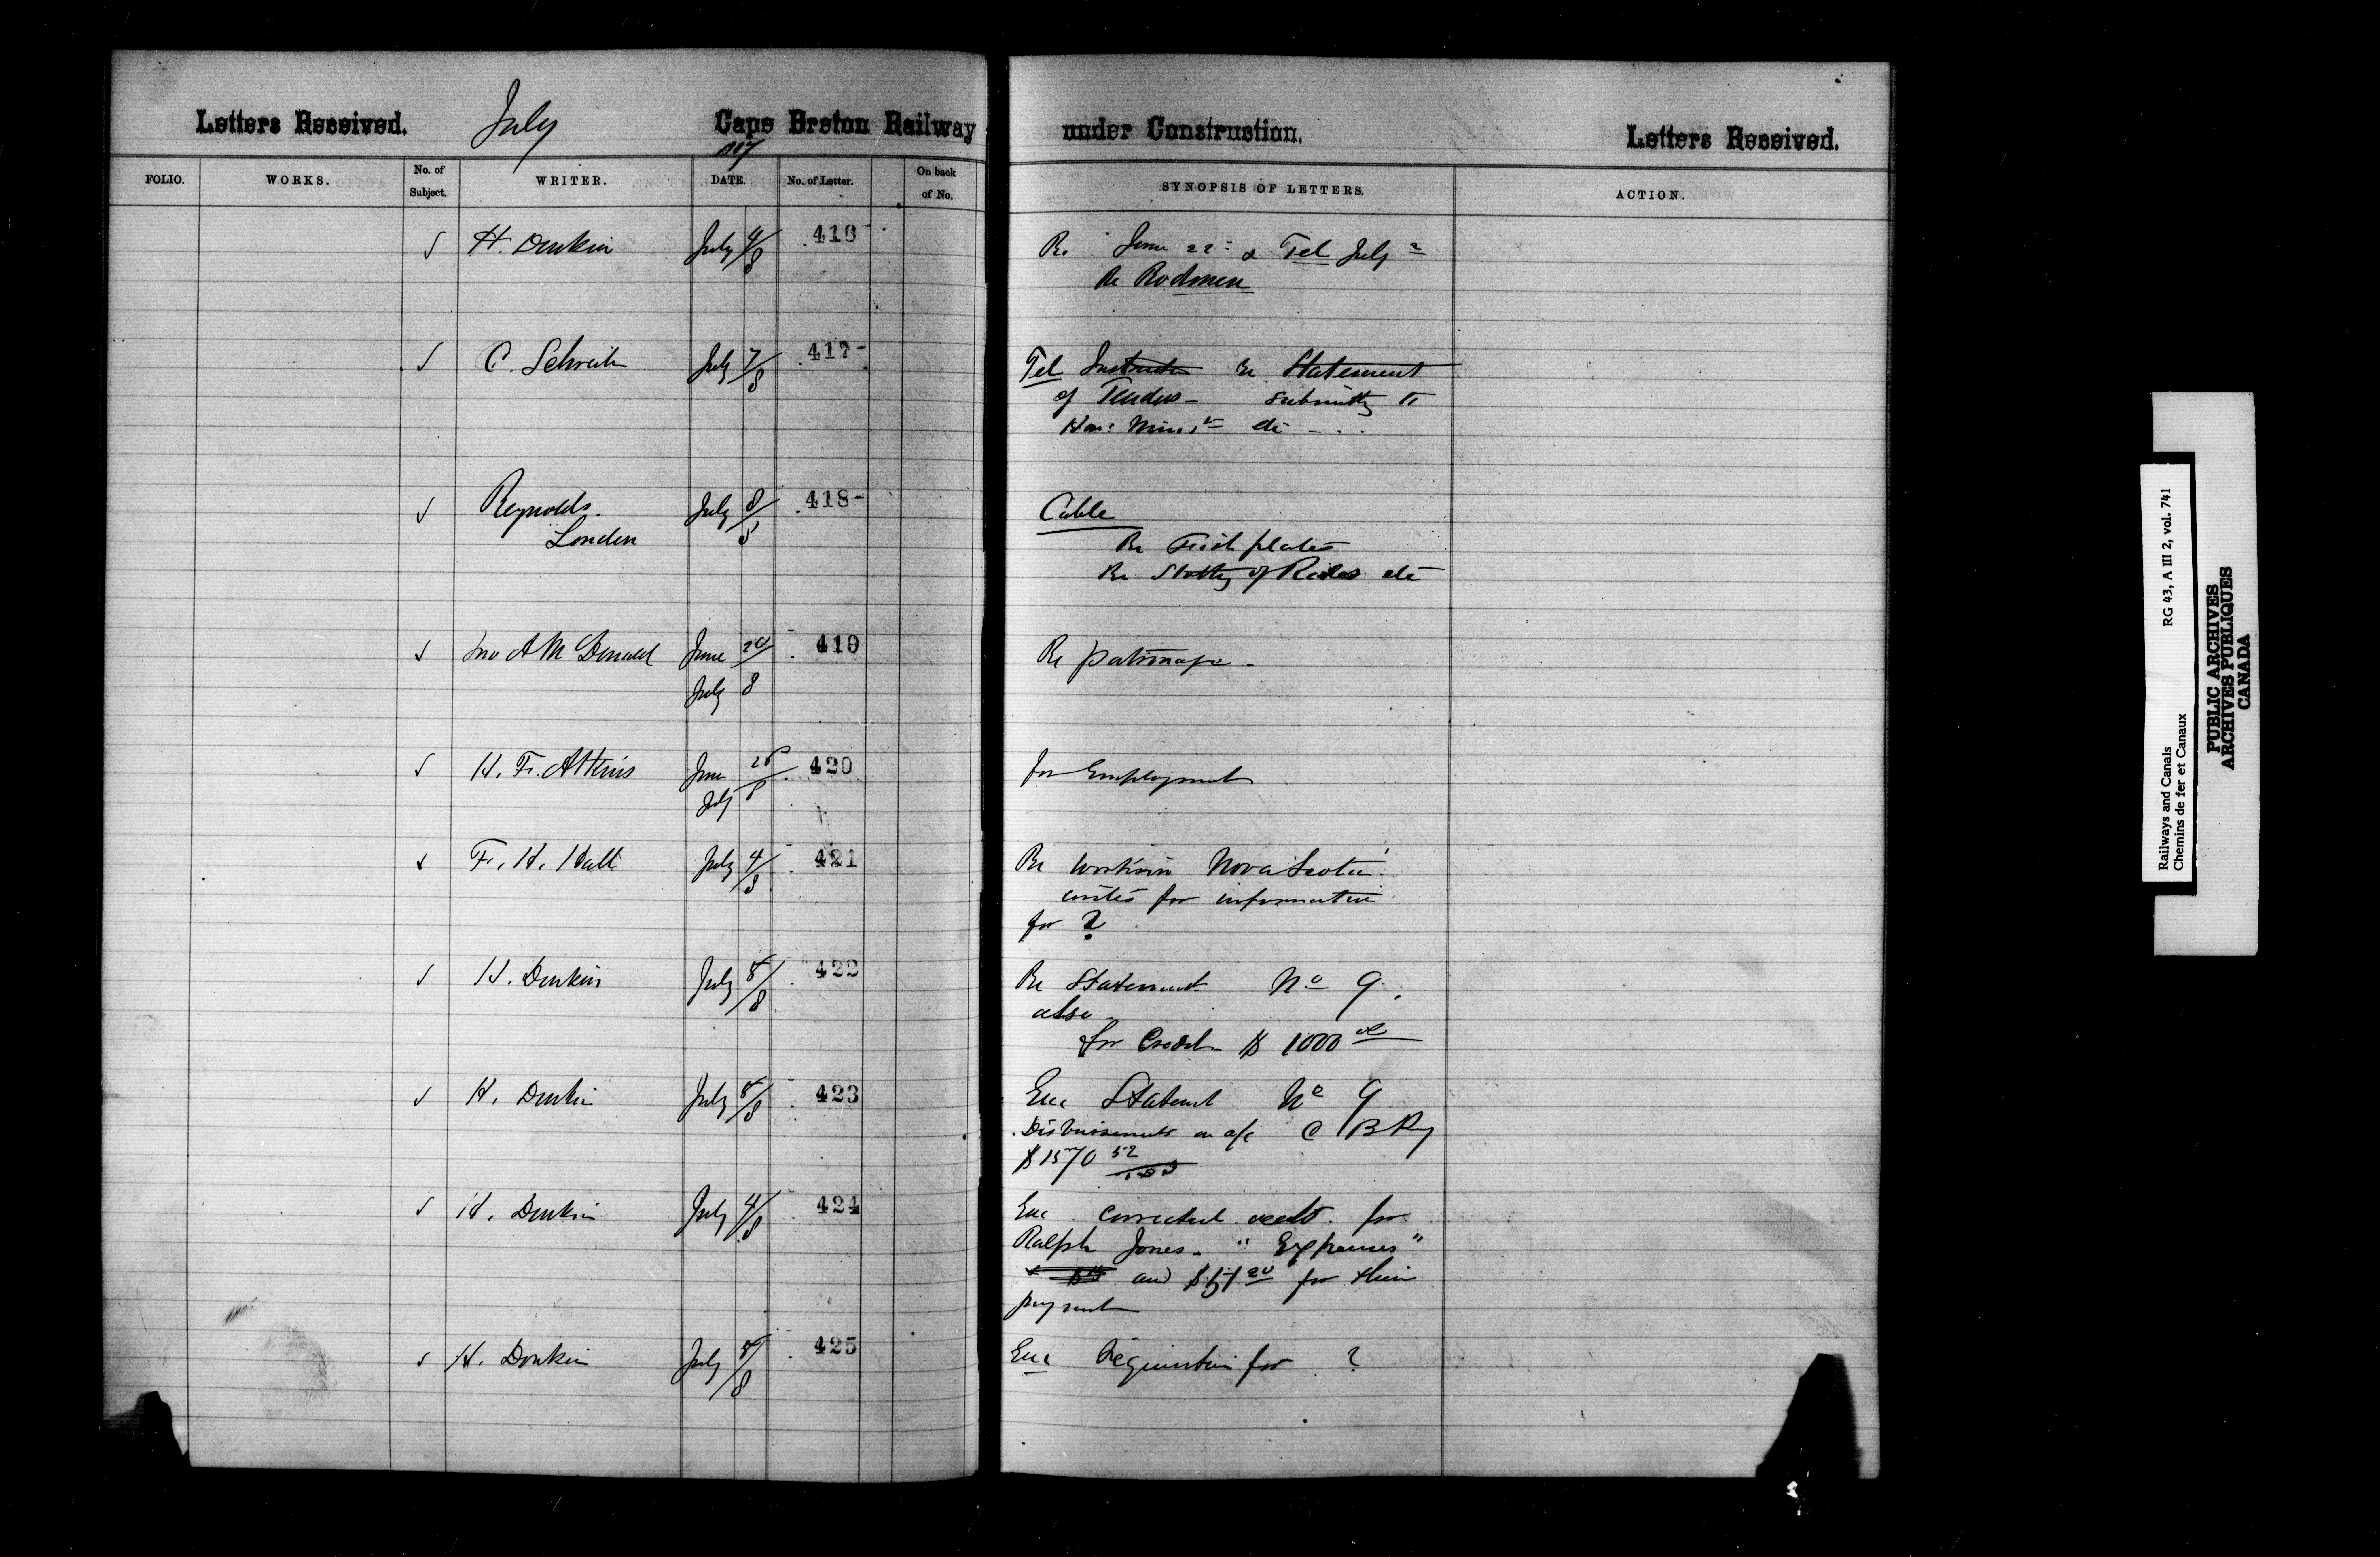 Letters Received. July Cape Breton Railway under Construction. Letters Received.
FOLIO. WORKS. No. of Subject. WRITER. DATE. No. of Letter. On back of No. SYNOPSIS OF LETTERS. ACTION.
H. Donkin July 4/8 416 Re June 22 & Tel July 2
Re Rodmen
C. Schreiber July 7/8 417 Tel Re Statement
of Tenders - submitted to
Hon: Minisr etc
Reynolds. July 8/8 418 Cable
London
Re Fish plates
Re of etc
Jno A McDonald June 419 Re patronage -
July 8
H. F. Atkins June 420 for Employment
July 8
F. H. Hall July 4/8 421 Re works in Nova Scotia
writes for information
for ?
H. Donkin July 5/8 422 Re Statement No 9.
also
for Credit $ 1000 00
H. Donkin July 5/8 423 Enc Statement No 9
Disbursements on a/c C B Ry
$1570 52/100
H. Donkin July 4/8 424 Enc corrected for
Ralph Jones. " Expenses "
and $51 20 for their
payment
H. Donkin July 5/8 425 Enc Requisition for ?
Railways and Canals RG 43, A III 2, vol. 741
Chemins de fer et Canaux
PUBLIC ARCHIVES
ARCHIVES PUBLIQUES
CANADA